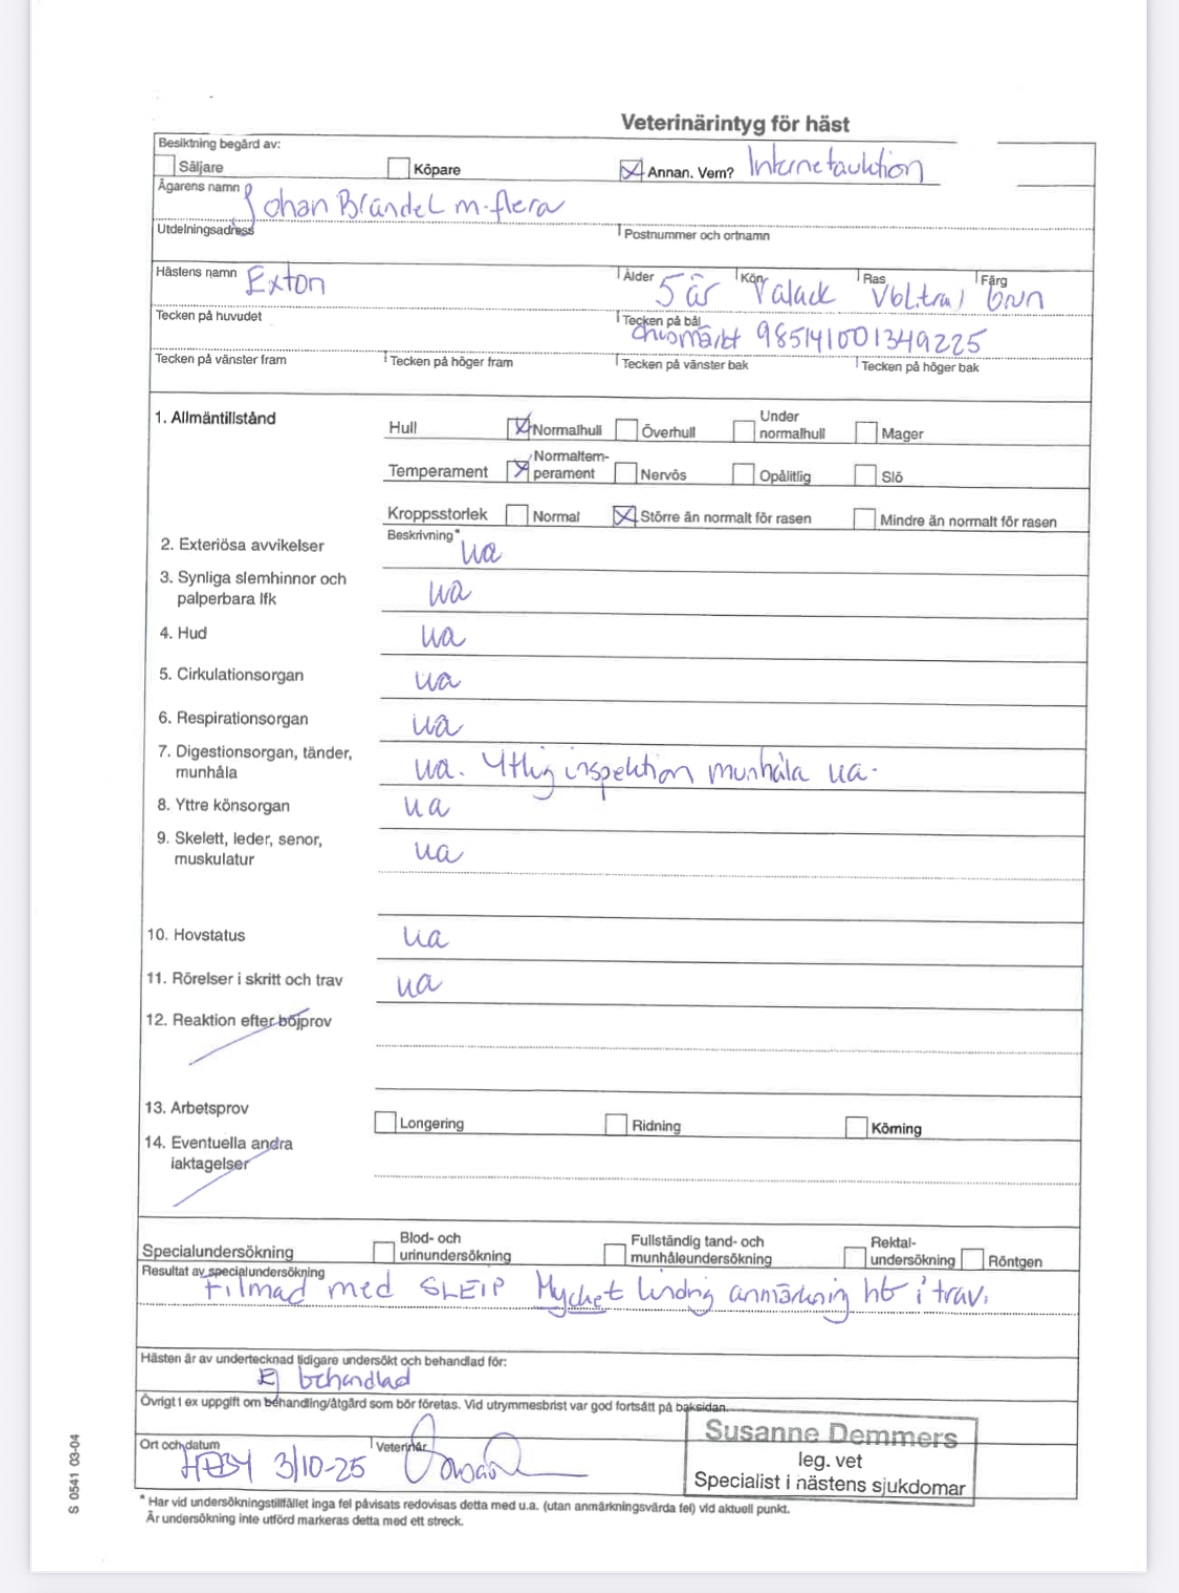 Veterinärintyg för häst
Besiktning begärd av:
Säljare Köpare Annan. Vem? Internetauktion
Ägarens namn Johan Brändel m-flera
Utdelningsadress Postnummer och ortnamn
Hästens namn Exton Ålder 5 år Kön Valack Ras Vbl.trav Färg brun
Tecken på huvudet Tecken på bål chipsmärkt 985141001349225
Tecken på vänster fram Tecken på höger fram Tecken på vänster bak Tecken på höger bak
1. Allmäntillstånd
Hull Normalhull Överhull Under normalhull Mager
Temperament Normaltem-
perament Nervös Opålitlig Slö
Kroppsstorlek Normal Större än normalt för rasen Mindre än normalt för rasen
Beskrivning*
2. Exteriösa avvikelser ua
3. Synliga slemhinnor och
palperbara lfk ua
4. Hud ua
5. Cirkulationsorgan ua
6. Respirationsorgan ua
7. Digestionsorgan, tänder,
munhåla ua. Ytlig inspektion munhåla ua.
8. Yttre könsorgan ua
9. Skelett, leder, senor,
muskulatur ua
10. Hovstatus ua
11. Rörelser i skritt och trav ua
12. Reaktion efter böjprov
13. Arbetsprov Longering Ridning Körning
14. Eventuella andra
iaktagelser
Specialundersökning Blod- och
urinundersökning Fullständig tand- och
munhåleundersökning Rektal-
undersökning Röntgen
Resultat av specialundersökning
Filmad med SLEIP Mycket lindrig anmärkning hb i trav.
Hästen är av undertecknad tidigare undersökt och behandlad för:
Ej behandlad
Övrigt t ex uppgift om behandling/åtgärd som bör företas. Vid utrymmesbrist var god fortsätt på baksidan.
Susanne Demmers
leg. vet
Specialist i hästens sjukdomar
Ort och datum 3/10-25 Veterinär
* Har vid undersökningstillfället inga fel påvisats redovisas detta med u.a. (utan anmärkningsvärda fel) vid aktuell punkt.
Är undersökning inte utförd markeras detta med ett streck.
S 0541 03-04